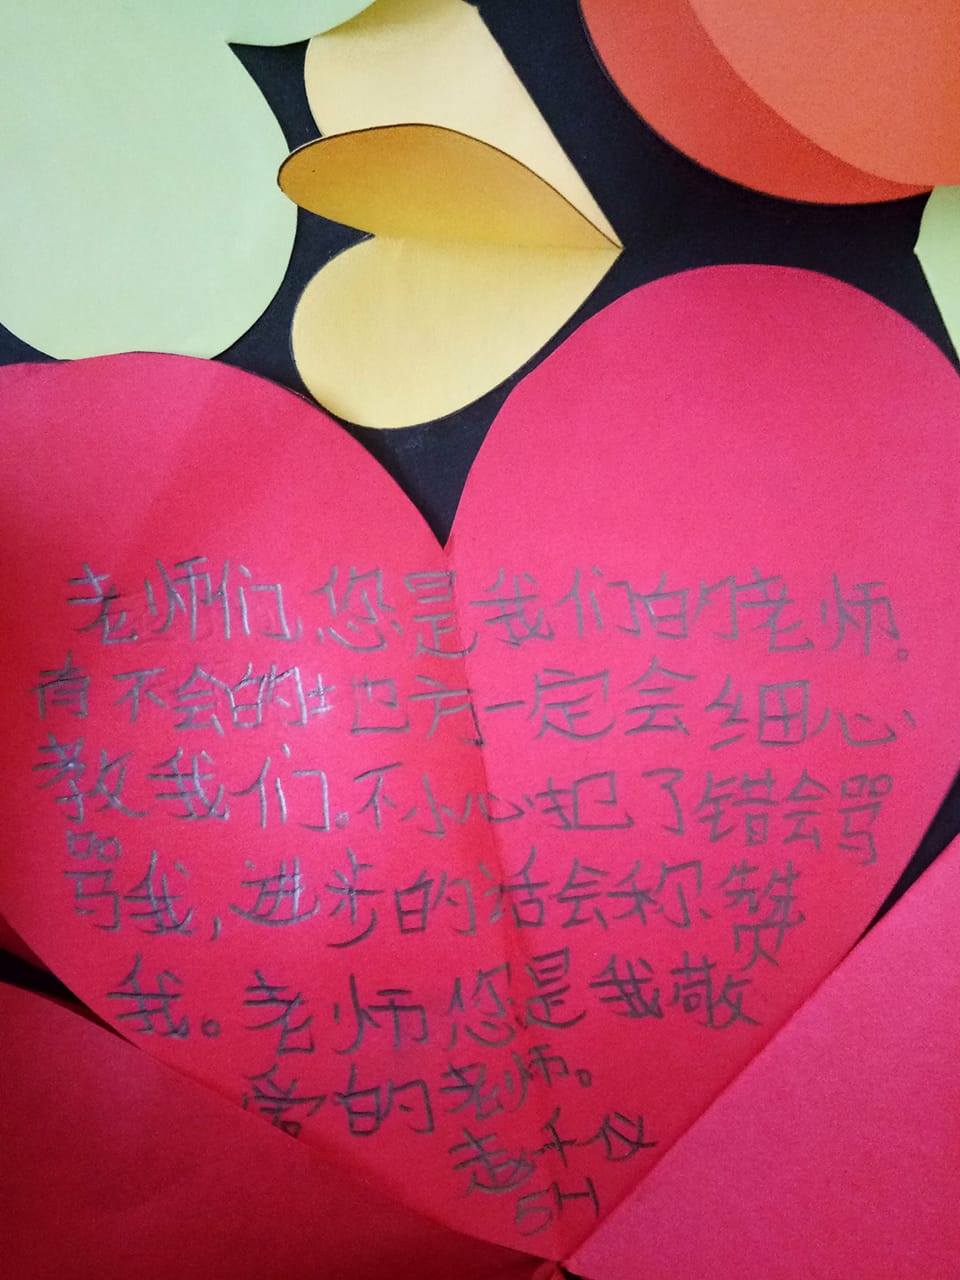 老师们，您是我们的老师。
有不会的地方一定会细心
教我们。不小心犯了错会骂
骂我，进步的话会称赞
我。老师您是我敬
爱的老师。
赵千仪
5H